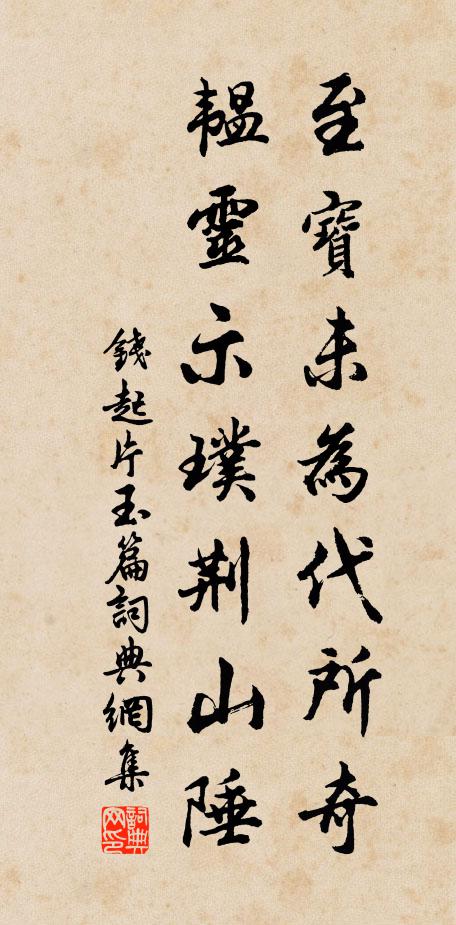 至寶未為代所奇
韞靈示璞荆山陲
錢起片玉篇詞典網集
詞典网印